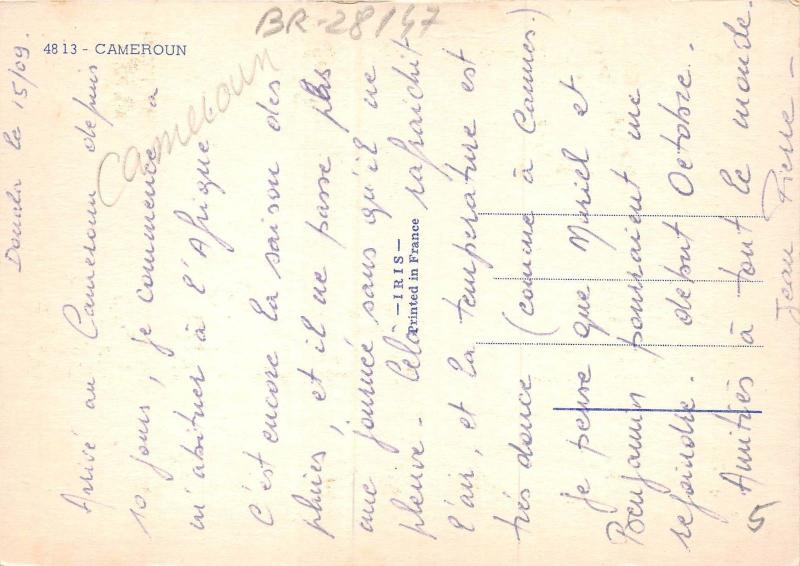 BR-28147
4813 - CAMEROUN
Cameroun
Douala le 15/09.
Arrivé au Cameroun depuis
10 jours, je commence à
m'abituer à l'Afrique
C'est encore la saison des
pluies, et il ne passe plus
une journée sans qu'il ne
pleuve. Celà rafraichit
l'air, et la temperature est
très douce (comme à Cannes.)
Je pense que Muriel et
Benjamin pourraient me
rejoindre. debut Octobre.
Amitiés à tout le monde.
Jean Pierre -
— IRIS —
Printed in France
5